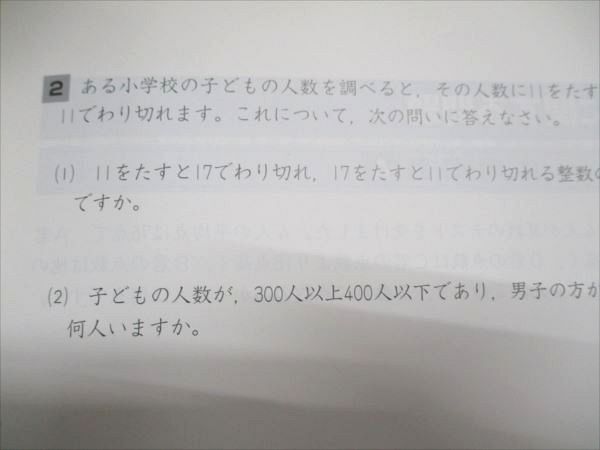 2 ある小学校の子どもの人数を調べると，その人数に11をたす
11でわり切れます。これについて，次の問いに答えなさい。
(1) 11をたすと17でわり切れ，17をたすと11でわり切れる整数の
ですか。
(2) 子どもの人数が，300人以上400人以下であり，男子の方が
何人いますか。